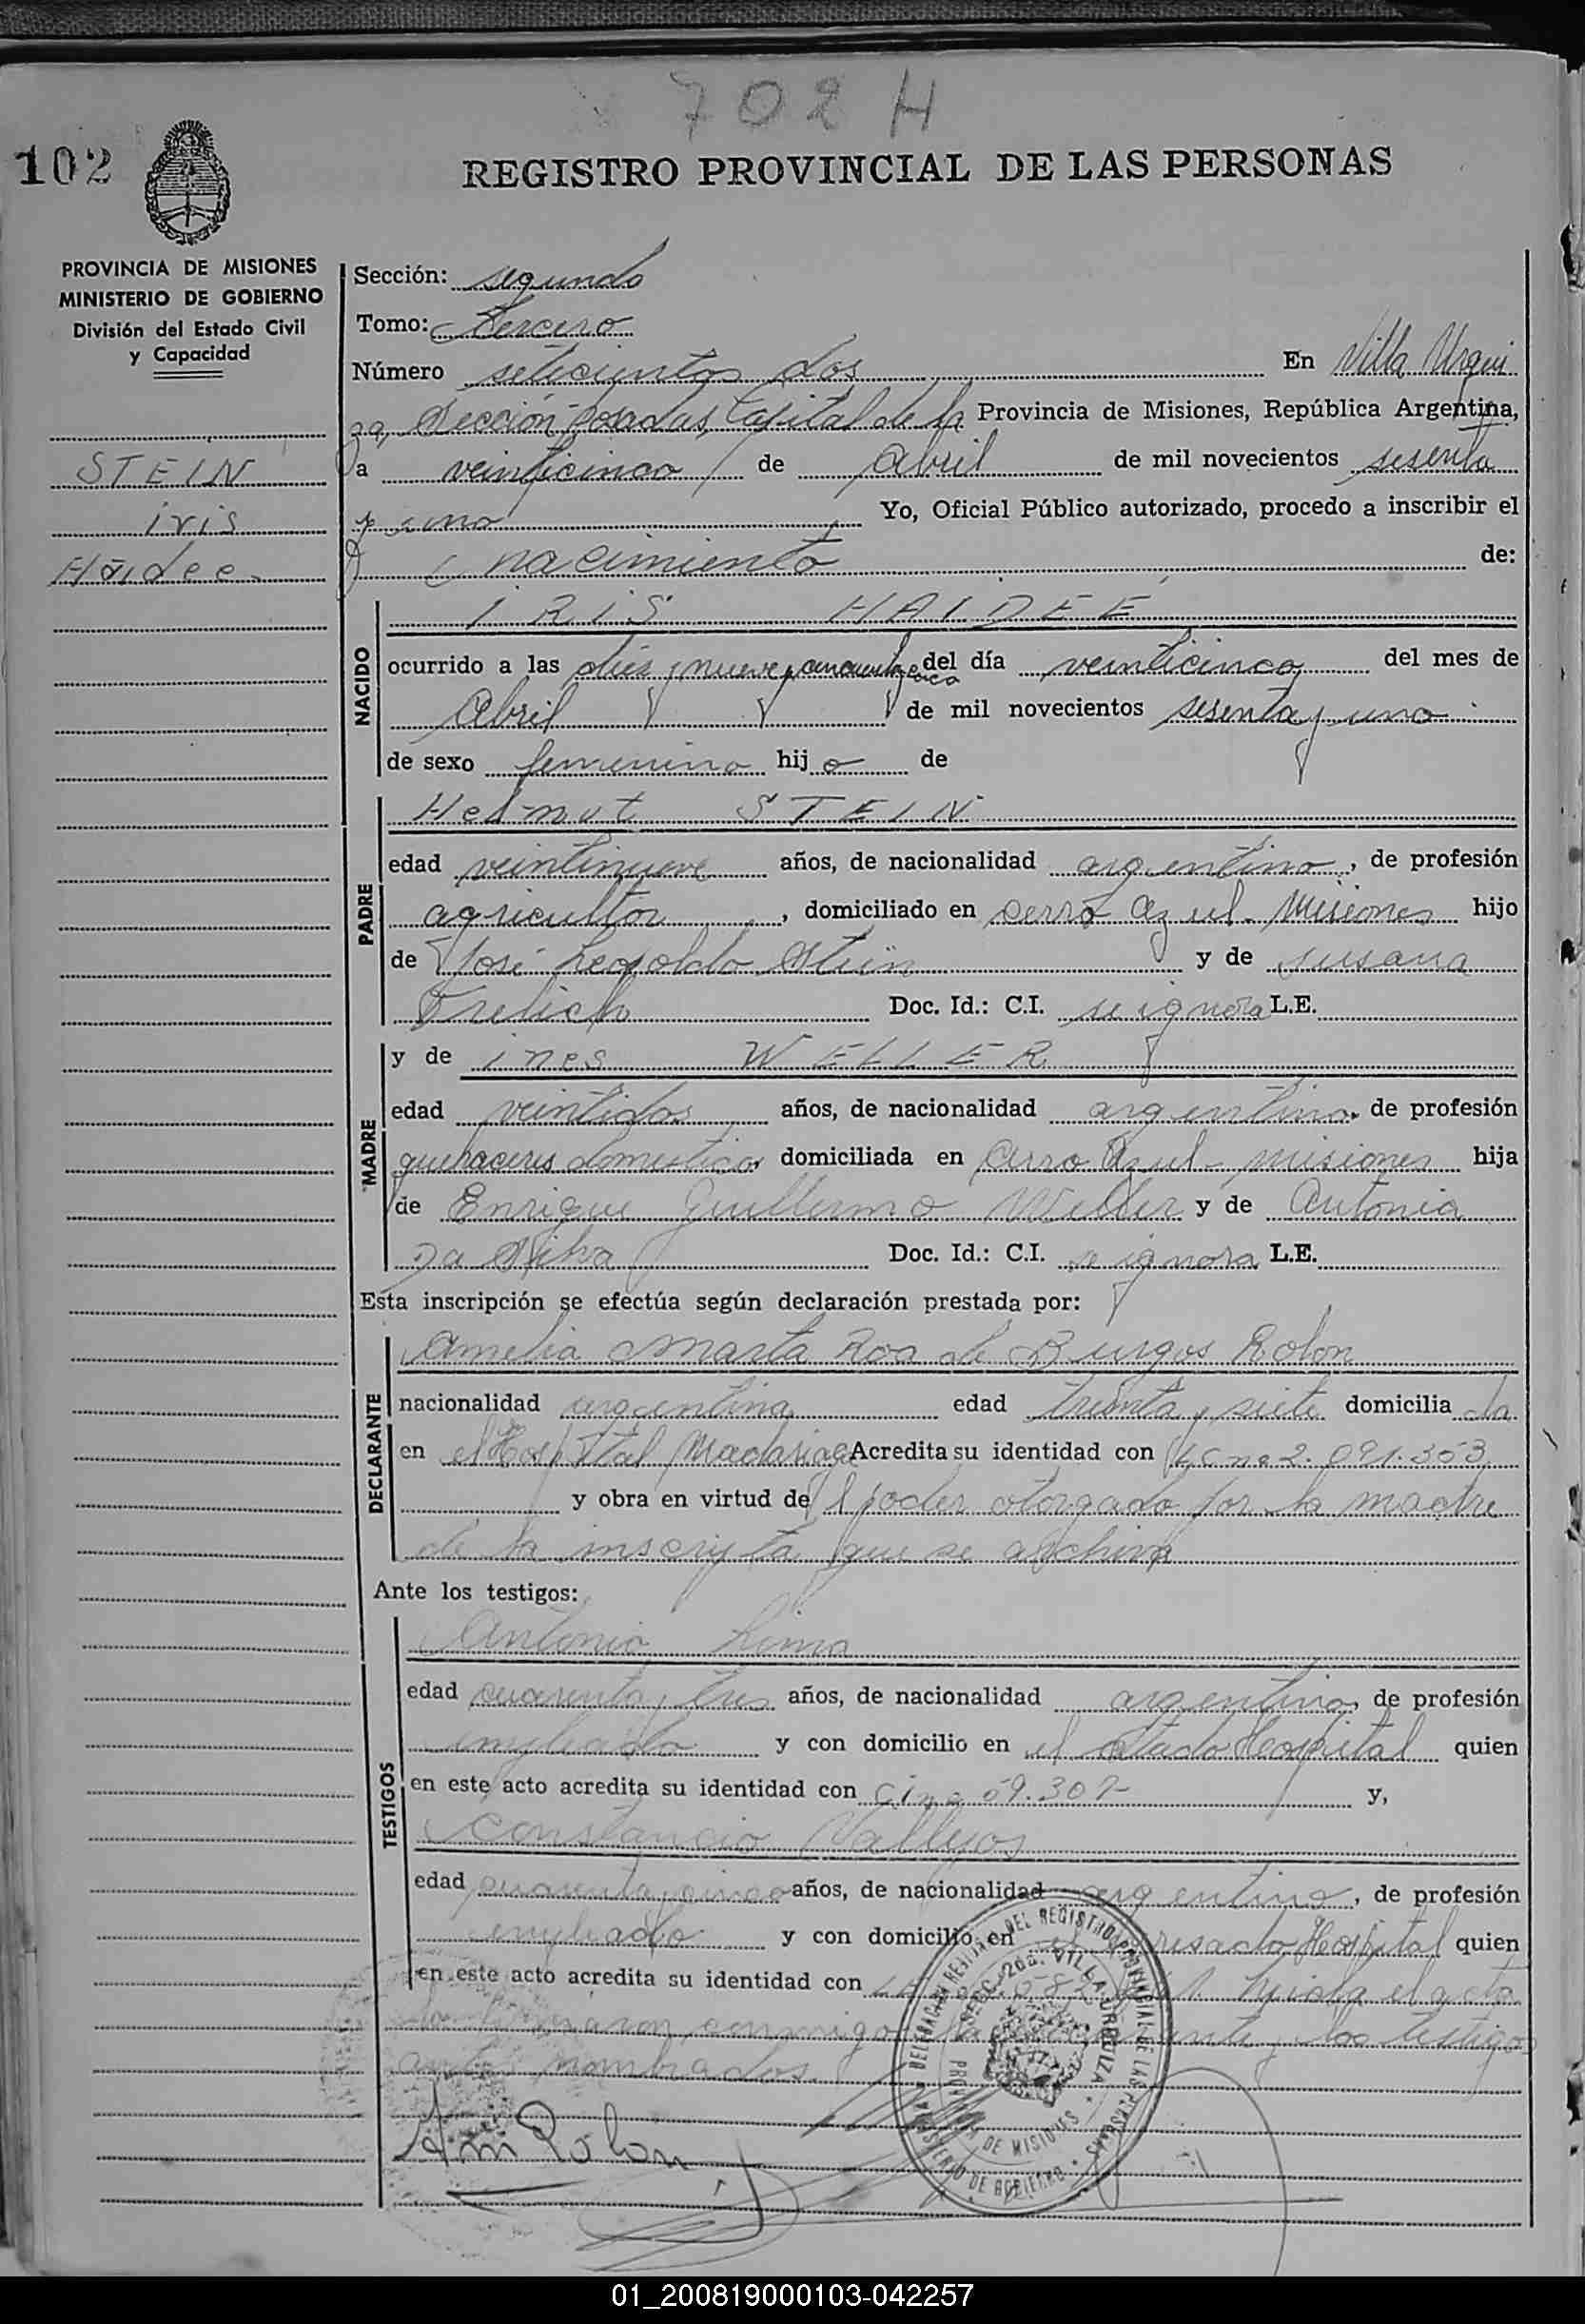 702 H
102
REGISTRO PROVINCIAL DE LAS PERSONAS
PROVINCIA DE MISIONES
MINISTERIO DE GOBIERNO
División del Estado Civil
y Capacidad
STEIN
iris
Haidee.
Sección: segundo
Tomo: tercero
Número setecientos dos En Villa Urqui
za, Sección Posadas, Capital de la Provincia de Misiones, República Argentina,
a veinticinco de Abril de mil novecientos sesenta
y uno Yo, Oficial Público autorizado, procedo a inscribir el
nacimiento de:
IRIS HAIDEE
NACIDO
ocurrido a las dies y nueve y cincuenta del día veinticinco del mes de
Abril de mil novecientos sesenta y uno
de sexo femenino hij a de
PADRE
Helmut STEIN
edad veintinueve años, de nacionalidad argentino, de profesión
agricultor, domiciliado en Cerro Azul - Misiones hijo
de José Leopoldo Stein y de Susana
Frelich Doc. Id.: C.I. se ignora L.E.
MADRE
y de ines WELLER
edad veintidos años, de nacionalidad argentina de profesión
quehaceres domesticos domiciliada en Cerro Azul - misiones hija
de Enrique Guillermo Weller y de Antonia
Da Silva Doc. Id.: C.I. se ignora L.E.
Esta inscripción se efectúa según declaración prestada por:
DECLARANTE
Amelia Marta Roa de Burgos Rolon
nacionalidad argentina edad treinta y siete domicilia da
en el Hospital Madariaga Acredita su identidad con LC nº 2.091.353
y obra en virtud del poder otorgado por la madre
de la inscripta que se archiva
Ante los testigos:
TESTIGOS
Antonio Lima
edad cuarenta y tres años, de nacionalidad argentino, de profesión
empleado y con domicilio en el citado Hospital quien
en este acto acredita su identidad con C.I nº 59.307- y,
Constancio Vallejos
edad cuarenta y cinco años, de nacionalidad argentino, de profesión
empleado y con domicilio en el Hospital quien
en este acto acredita su identidad con el acta
la firmaron conmigo la y los testigos
antes nombrados.
Am Rolon
DELEGACION DEL REGISTRO PROVINCIAL DE LAS PERSONAS
SECC. 2da. VILLA URQUIZA
PROVINCIA DE MISIONES
MINISTERIO DE GOBIERNO
01_200819000103-042257